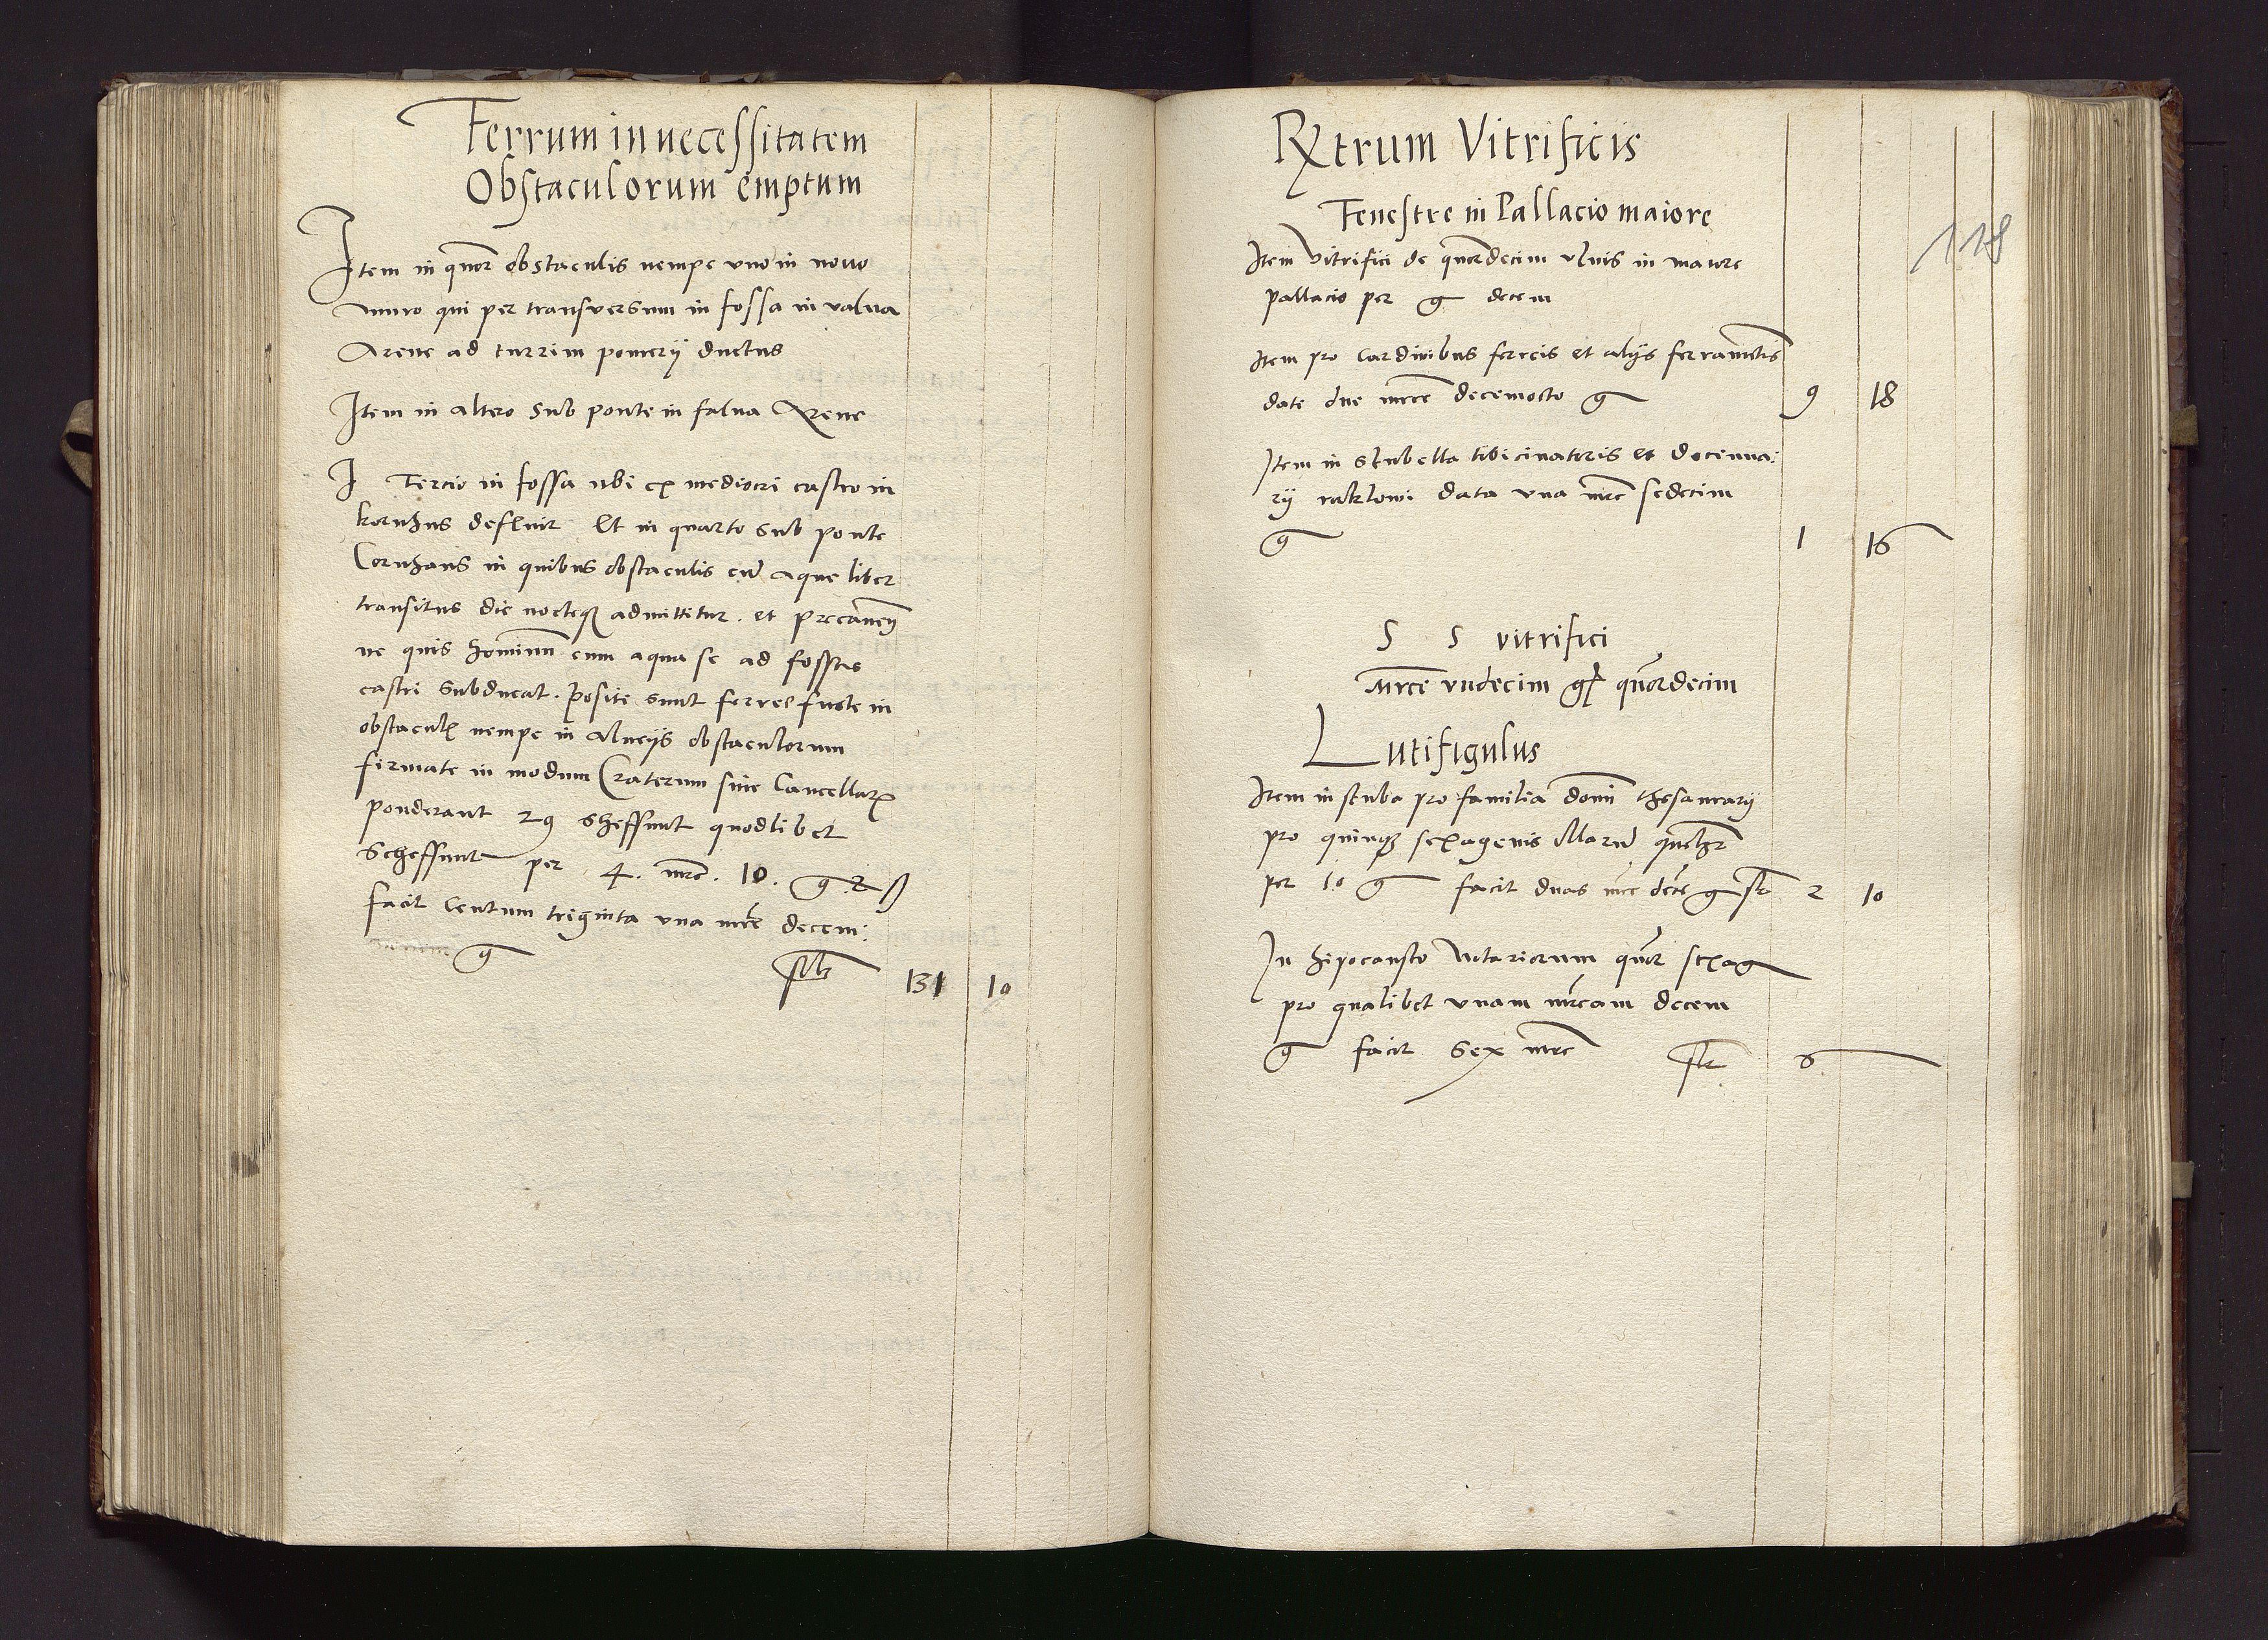 Ferrum in necessitatem
Obstaculorum emptum
Item in quor obstaculis nempe uno in novo
muro qui per transversum in fossa in valva
Arene ad turrim pomerij ductus
Item in altero sub ponte in falva Arene
I Tercio in fossa ubi ex mediocri castro in
kornhus defluit Et in quarto sub ponte
Cornhaus in quibus obstaculis cum aque liber
transitus die nocteq admittitur . et precaven
ne quis hominum cum aqua se ad fossas
castri subducat . posite sunt ferree fuste in
obstacul nempe in alveijs obstaculorum
firmate in modum Craterum sive Cancellar
ponderant 29 sheffunt quodlibet
Scheffunt per 4 . mrc . 10 . g 2 ß
facit Centum triginta una mrc decem :
g 131 10
Rx trum Vitrificis
118
Fenestre in Pallacio maiore
Item vitrifici de quordecim ulnis in maiore
pallacio per g decem
Item pro cardinibus ferreis et alijs ferramentis
date due mrce decemocto g 9 18
Item in stubella tibicinatoris et docenna:
rij data una mrc sedecim
g 1 16
S S vitrifici
Mrce undecim g quordecim
Lutifigulus
Item in stuba pro familia domi thesaurarij
pro quinq sexagenis
per 10 g facit duas mrce dece g 2 10
In hipocausto Notariorum quor sexag
pro qualibet unam mrcam decem
g facit sex mrc 6